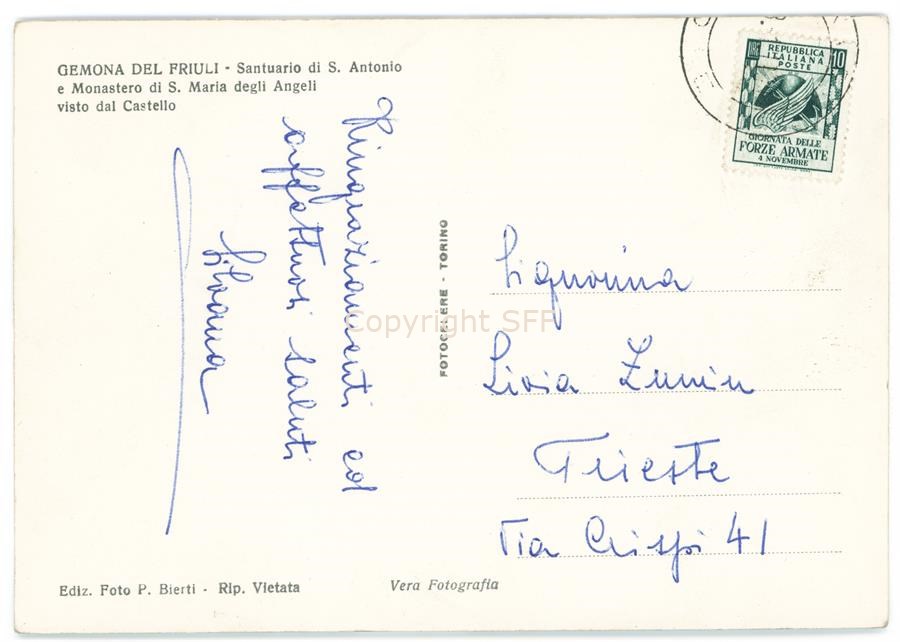 GEMONA DEL FRIULI - Santuario di S. Antonio
e Monastero di S. Maria degli Angeli
visto dal Castello
Ringraziamenti ed
affettuosi saluti
Silvana
FOTOCELERE - TORINO
REPUBBLICA
ITALIANA
POSTE
10
GIORNATA DELLE
FORZE ARMATE
4 NOVEMBRE
Signorina
Livia Zunin
Trieste
Via Crispi 41
Copyright SFF
Ediz. Foto P. Bierti - Rip. Vietata
Vera Fotografia